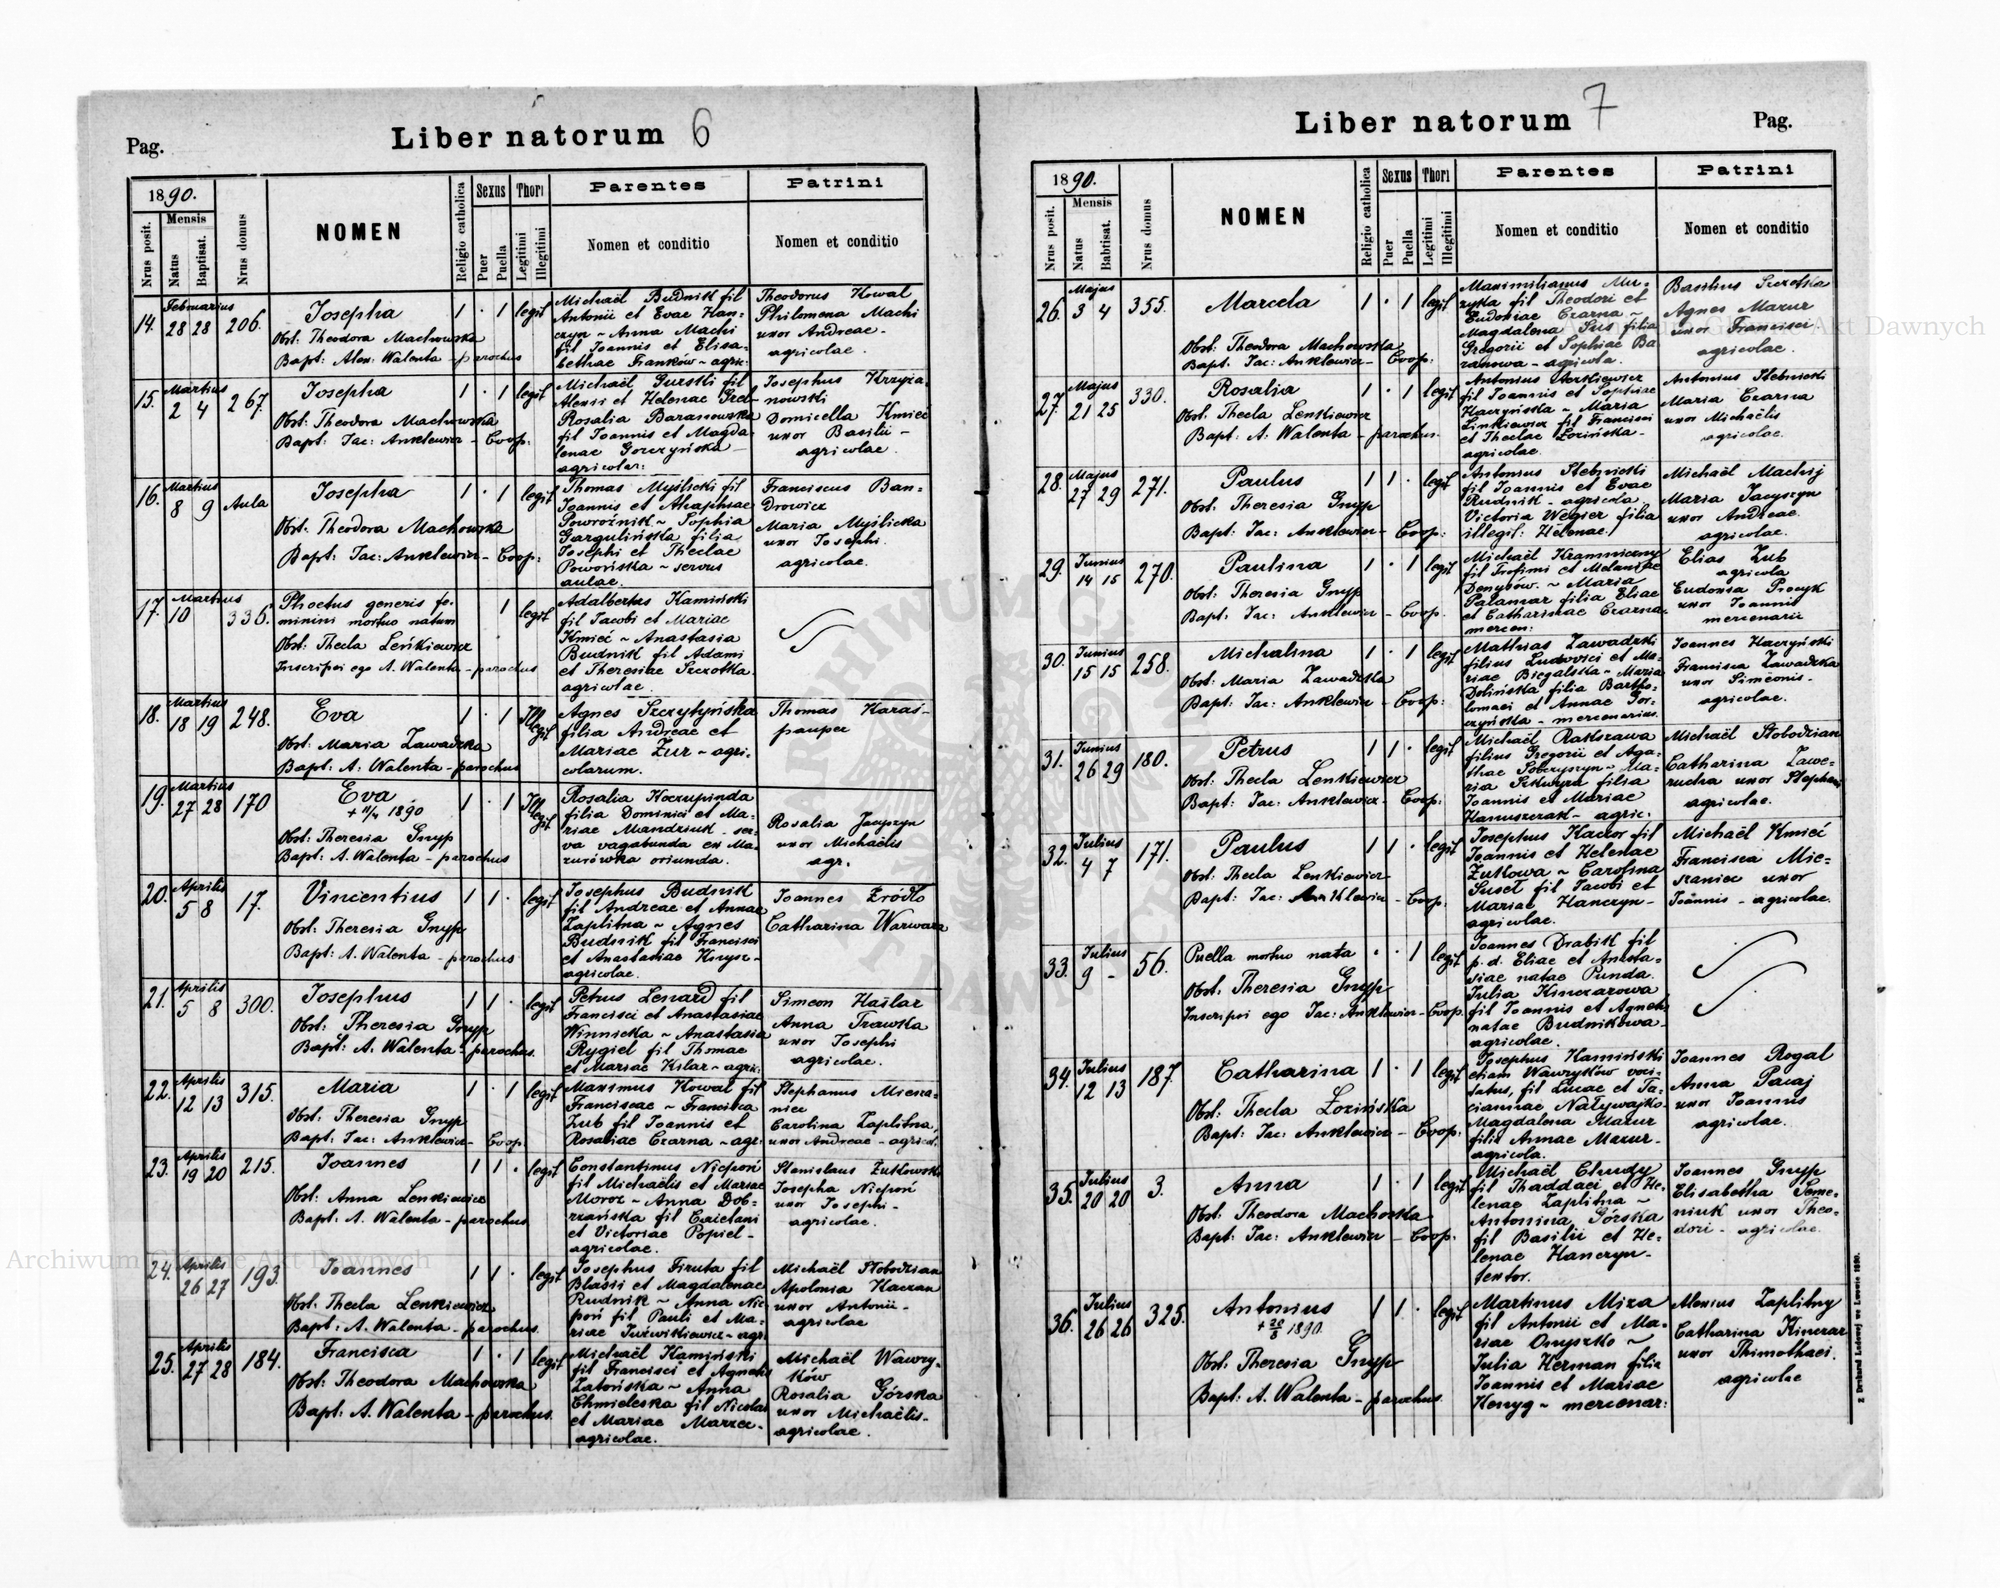 Pag.
Liber natorum 6
1890.
Nrus posit.
Mensis
Natus
Baptisat.
Nrus domus
NOMEN
Religio catholica
Sexus
Puer
Puella
Thori
Legitimi
Illegitimi
Parentes
Nomen et conditio
Patrini
Nomen et conditio
14.
Februarius
28 28
206.
Josepha
Obst. Theodora Machowska
Bapt: Alex: Walenta - parochus
1 · 1 legit
Michaël Budnik fil
Antonii et Evae Han-
czyn ~ Anna Machi
fil Joannis et Elisa-
bethae Franków ~ agric:
Theodorus Kowal
Philomena Machi
uxor Andreae -
agricolae.
15.
Martius
2 4
267.
Josepha
Obst: Theodora Machowska
Bapt: Jac: Anklewicz - Coop:
1 · 1 legit
Michaël Gurski fil
Alexii et Helenae
Rosalia Baranowska
fil Joannis et Magda-
lenae Gorczyńska -
agricolar:
Josephus Krzyża-
nowski
Domicella Kmieć
uxor Basilii -
agricolae.
16.
Martius
8 9
Aula
Josepha
Obst. Theodora Machowska
Bapt: Jac: Anklewicz - Coop:
1 · 1 legit
Thomas Myślicki fil
Joannis et Ahaphiae
Powroźnik ~ Sophia
Gargulińska filia
Josephi et Theclae
Powońska ~ servus
aulae.
Franciscus Ban-
Drowicz
Maria Myślicka
uxor Josephi
agricolae.
17.
Martius
10
336.
Phoetus generis fe-
minini mortuo natum
Obst: Thecla Leńkiewicz
Inscripsi ego A. Walenta - parochus
1 legit
Adalbertus Kamiński
fil Jacobi et Mariae
Kmieć ~ Anastasia
Budnik fil Adami
et Theresiae Szczotka
agricolae.
18.
Martius
18 19
248.
Eva
Obst. Maria Zawadzka
Bapt: A. Walenta - parochus
1 · 1 Illegit
Agnes Szczytyńska
filia Andreae et
Mariae Żur ~ agri-
colarum.
Thomas Karaś -
pauper
19.
Martius
27 28
170
Eva
+ 11/4 1890
Obst: Theresia Gnyp
Bapt: A. Walenta - parochus
1 · 1 Illegit
Rosalia Koczupinda
filia Dominici et Ma-
riae Mandziuk - ser-
va vagabunda ex Ma-
zurówka oriunda.
Rosalia Jacyszyn
uxor Michaëlis
agr.
20.
Aprilis
5 8
17.
Vincentius
Obst: Theresia Gnyp
Bapt: A. Walenta - parochus
1 1 · legit
Josephus Budnik
fil Andreae et Annae
Zaplitna ~ Agnes
Budnik fil Francisci
et Anastasiae Knysz-
agricolae.
Joannes Źródło
Catharina Warwara
21.
Aprilis
5 8
300.
Josephus
Obst: Theresia Gnyp
Bapt: A. Walenta - parochus.
1 1 · legit
Petrus Lenard fil
Francisci et Anastasiae
Winnicka ~ Anastasia
Rygiel fil Thomae
et Mariae Kilar ~ agric:
Simeon Haślar
Anna Trawska
uxor Josephi
agricolae.
22.
Aprilis
12 13
315.
Maria
Obst: Theresia Gnyp
Bapt: Jac: Anklewicz - Coop.
1 · 1 legit
Maximus Kowal fil
Franciscae ~ Francisca
Zub fil Joannis et
Rosaliae Czarna ~ agr:
Stephanus Miesza-
niec
Carolina Zaplitna,
uxor Andreae - agricol.
23.
Aprilis
19 20
215.
Joannes
Obst: Anna Lenkiewicz
Bapt: A. Walenta - parochus
1 1 · legit
Constantinus Nicpoń
fil Michaëlis et Mariae
Moroz ~ Anna Dob-
rzańska fil Caietani
et Victoriae Popiel -
agricolae.
Stanislaus Żułkowski
Josepha Nicpoń
uxor Josephi -
agricolae.
24.
Aprilis
26 27
193.
Joannes
Obst: Thecla Lenkiewicz
Bapt: A. Walenta - parochus.
1 1 · legit
Josephus Firuta fil
Blasii et Magdalenae
Rudnik ~ Anna Nic-
poń fil Pauli et Ma-
riae Juświkiewicz ~ agr:
Michaël Słobodzian
Apolonia Kaczan
uxor Antonii -
agricolae
25.
Aprilis
27 28
184.
Francisca
Obst: Theodora Machowska
Bapt: A. Walenta - parochus.
1 · 1 legit
Michaël Kamiński
fil Francisci et Agnetis
Zatońska ~ Anna
Chmielska fil Nicolai
et Mariae Marzec -
agricolae.
Michaël Wawry-
ków
Rosalia Górska
uxor Michaëlis -
agricolae.
Liber natorum 7
Pag.
1890.
Nrus posit.
Mensis
Natus
Babtisat.
Nrus domus
NOMEN
Religio catholica
Sexus
Puer
Puella
Thori
Legitimi
Illegitimi
Parentes
Nomen et conditio
Patrini
Nomen et conditio
26.
Majus
3 4
355.
Marcela
Obst: Theodora Machowska
Bapt: Jac: Anklewicz - Coop:
1 · 1 legit
Maximilianus Mu-
zyka fil Theodori et
Eudoxiae Czarna ~
Magdalena Sus filia
Gregorii et Sophiae Ba
ranowa - agricola.
Basilius Szczotka
Agnes Mazur
uxor Francisci
agricolae.
27.
Majus
21 25
330.
Rosalia
Obst: Thecla Lenkiewicz
Bapt: A. Walenta - parochus.
1 · 1 legit
Antonius
fil Joannis et Sophiae
Haczyńska ~ Maria
Linkiewicz fil Francisci
et Theclae Łozińska -
agricolae.
Antonius Stebnicki
Maria Czarna
uxor Michaëlis
agricolae.
28.
Majus
27 29
271.
Paulus
Obst: Theresia Gnyp
Bapt: Jac: Anklewicz - Coop:
1 1 · legit
Antonius Stebnicki
fil Joannis et Evae
Rudnik - agricola
Victoria Węgier filia
illegit: Helenae.
Michaël Machij
Maria Jacyszyn
uxor Andreae
agricolae.
29.
Junius
14 15
270.
Paulina
Obst: Theresia Gnyp
Bapt: Jac: Anklewicz - Coop.
1 · 1 legit
Michaël Kramniczny
fil Trofimi et Melaniae
Denysów. ~ Maria
Palamar filia Eliae
et Catharinae Czarna.
mercen:
Elias Zub
agricola
Eudoxia Procyk
uxor Joannis
mercenarii
30.
Junius
15 15
258.
Michalina
Obst: Maria Zawadzka
Bapt: Jac: Anklewicz - Coop:
1 · 1 legit
Mathias Zawadzki
filius Ludovici et Ma-
riae Biegalska ~ Maria
Dolińska filia Bartho-
lomaei et Annae Gor-
czyńska - mercenarius.
Joannes Haczyński
Francisca Zawadzka
uxor Simëonis -
agricolae.
31.
Junius
26 29
180.
Petrus
Obst: Thecla Lenkiewicz
Bapt: Jac: Anklewicz - Coop:
1 1 · legit
Michaël Rakszawa
filius Gregorii et Aga-
thae Sobczyszyn ~ Ma-
ria Szkwyra filia
Joannis et Mariae
Hanuszczak - agric.
Michaël Słobodzian
Catharina Zawe-
rucha uxor Stephani
agricolae.
32.
Julius
4 7
171.
Paulus
Obst: Thecla Lenkiewicz
Bapt: Jac: Anklewicz - Coop:
1 1 · legit
Josephus Kaczor fil
Joannis et Helenae
Żukowa ~ Carolina
Suseł fil Jacobi et
Mariae Hanczyn -
agricolae.
Michaël Kmieć
Francisca Mie-
szaniec uxor
Joannis - agricolae.
33.
Julius
9 -
56.
Puella mortuo nata
Obst: Theresia Gnyp
Inscripsi ego Jac: Anklewicz - Coop.
· · 1 legit
Joannes Drabik fil
p. d. Eliae et Anasta-
siae natae Punda.
Julia Kinczarowa
fil Joannis et Agnetis
natae Budnikowa -
agricolae.
34.
Julius
12 13
187.
Catharina
Obst: Thecla Łozińska
Bapt: Jac: Anklewicz - Coop:
1 · 1 legit
Josephus Kamiński
etiam Wawryków voci-
tatus, fil Lucae et Ta-
ciannae Nalywajko.
Magdalena Mazur
filia Annae Mazur -
agricola.
Joannes Rogal
Anna Pacaj
uxor Joannis
agricolae.
35.
Julius
20 20
3.
Anna
Obst: Theodora Machoska
Bapt: Jac: Anklewicz - Coop:
1 · 1 legit
Michaël Chudy
fil Thaddaei et He-
lenae Zaplitna ~
Antonina Górska
fil Basilii et He-
lenae Hanczyn -
textor.
Joannes Gnyp
Elisabetha Seme-
niuk uxor Theo-
dori - agricolae.
36.
Julius
26 26
325.
Antonius
+ 20/8 1890.
Obst: Theresia Gnyp
Bapt: A. Walenta - parochus.
1 1 · legit
Martinus Miza
fil Antonii et Ma-
riae Onyszko ~
Julia Herman filia
Joannis et Mariae
Kenyg ~ mercenar:
Alexius Zaplitny
Catharina Kinczar
uxor Thimothaei.
agricolae
Z Drukarni Ludowej we Lwowie 1890.
Archiwum Główne Akt Dawnych
Archiwum Główne Akt Dawnych